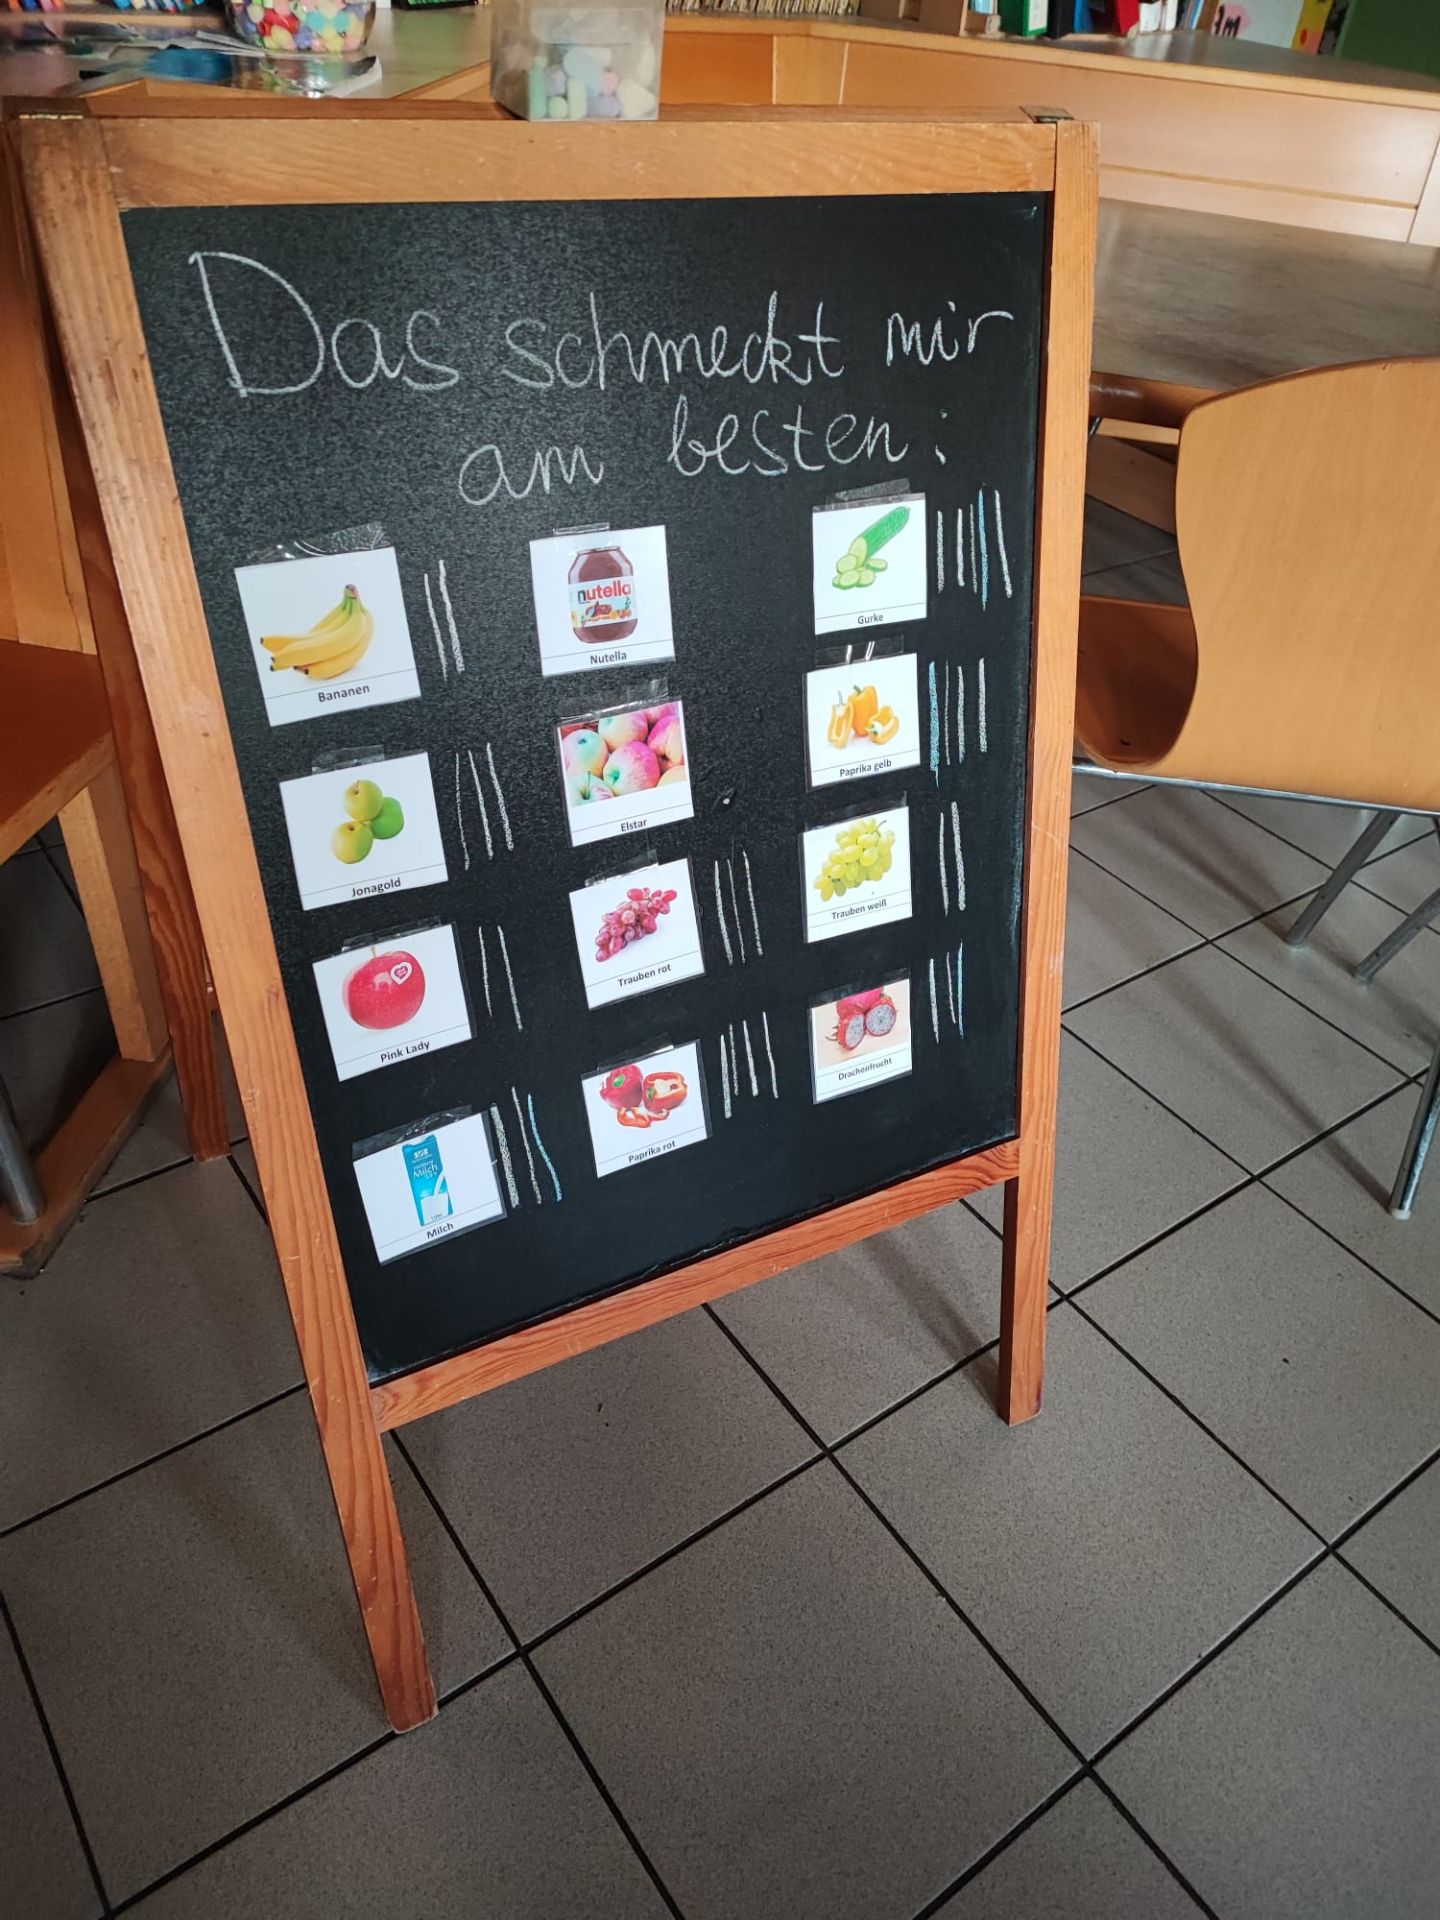 Das schmeckt mir
am besten:
Bananen
nutella
Nutella
Gurke
Jonagold
Elstar
Paprika gelb
Pink Lady
Trauben rot
Trauben weiß
Milch
Milch
Paprika rot
Drachenfrucht